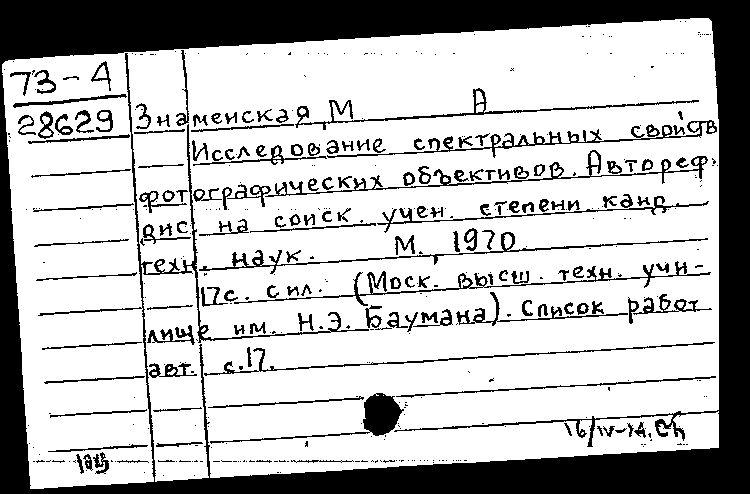 73-4
28629
Знаменская, М А
Исследование спектральных свойств
фотографических объективов. Автореф.
дис. на соиск. учен. степени канд.
техн. наук. М., 1970.
17с. с ил. (Моск. высш. техн. учи-
лище им. Н.Э. Баумана). Список работ
авт. с.17.
16/IV-74.